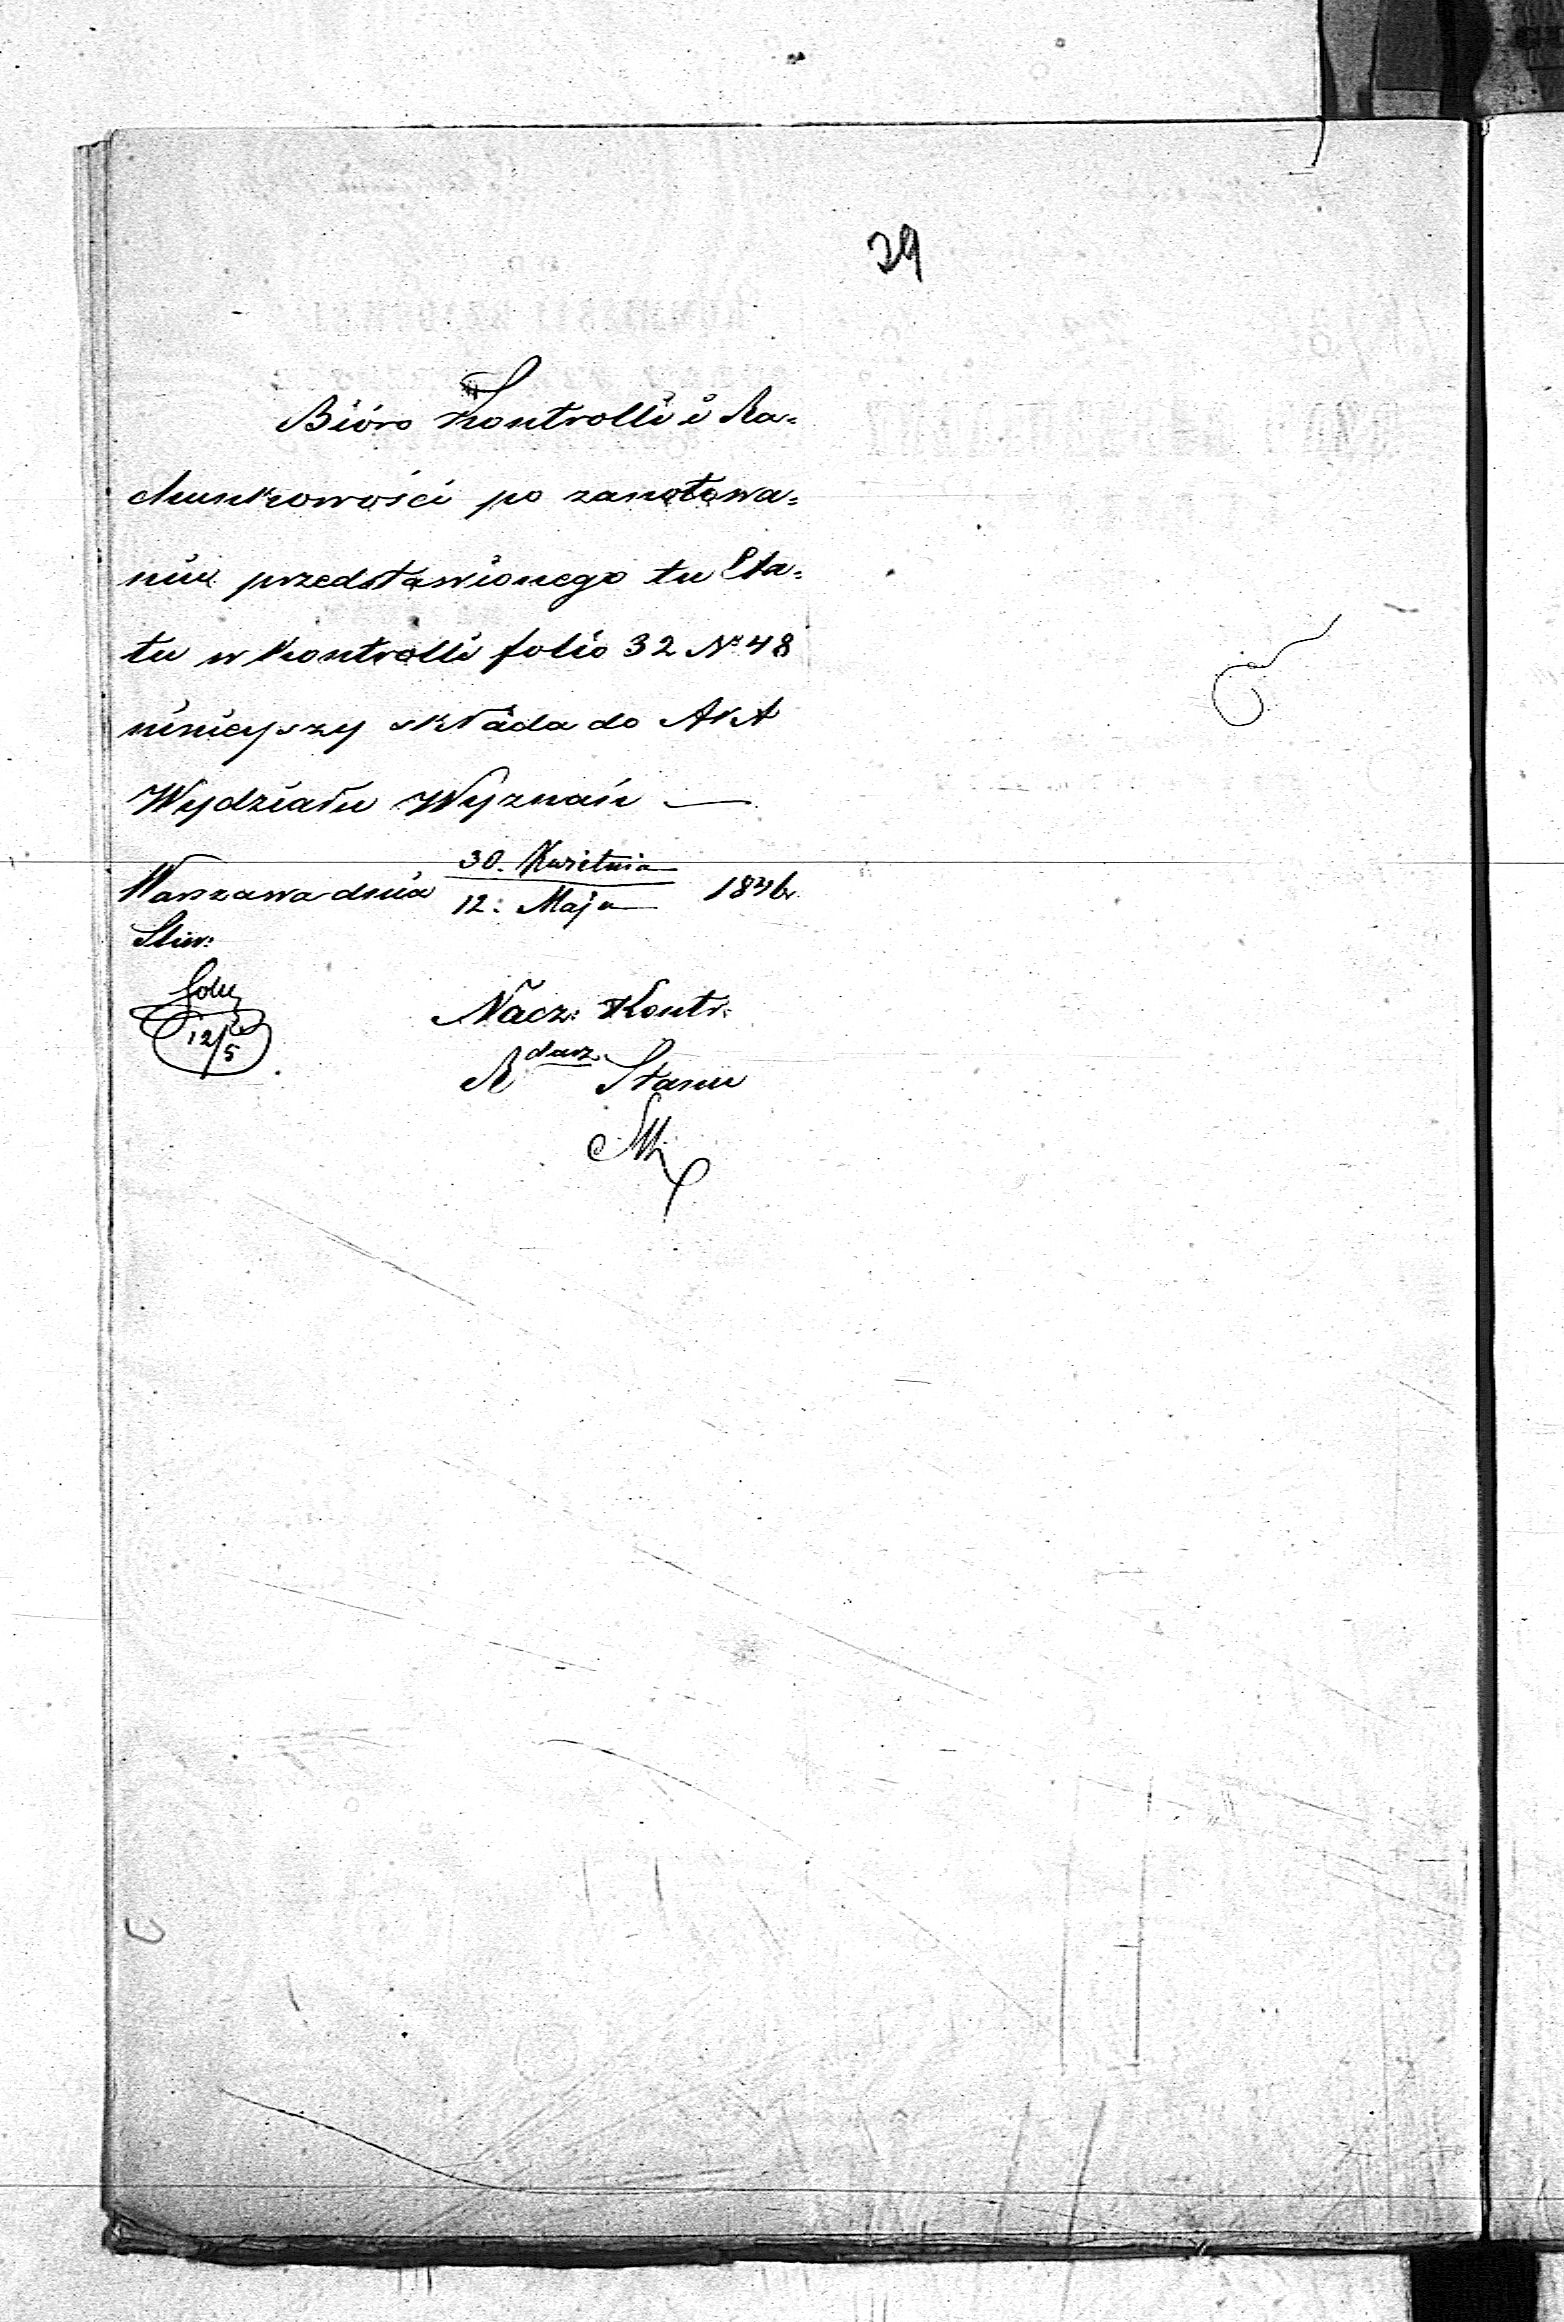 29
Bióro Kontrolli i Ra=
chunkowości po zanotowa=
niu przedstawionego tu Eta=
tu w Kontrolli folio 32 No 48
ninieyszy składa do Akt
Wydziału Wyznań —
Warszawa dnia 30. Kwietnia / 12. Maja 1846 r.
Nacz: Kontr:
Rdarz Stanu
12/5